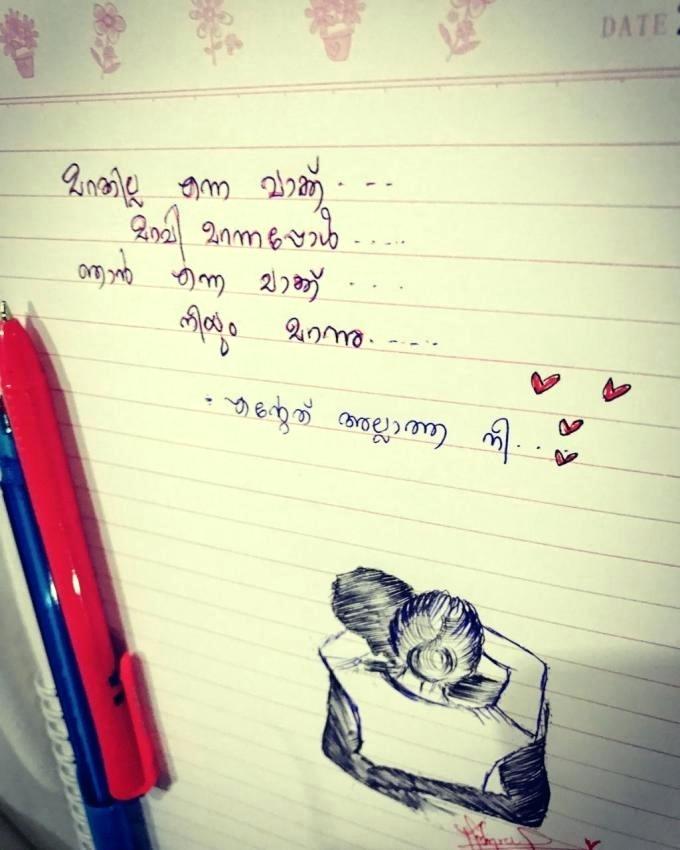 DATE
മറക്കില്ല എന്ന വാക്ക്. --
മറവി മറന്നപ്പോൾ .....
ഞാൻ എന്ന വാക്ക് ...
നിയും മറന്നു.....
: എന്റേത് അല്ലാത്ത നീ...